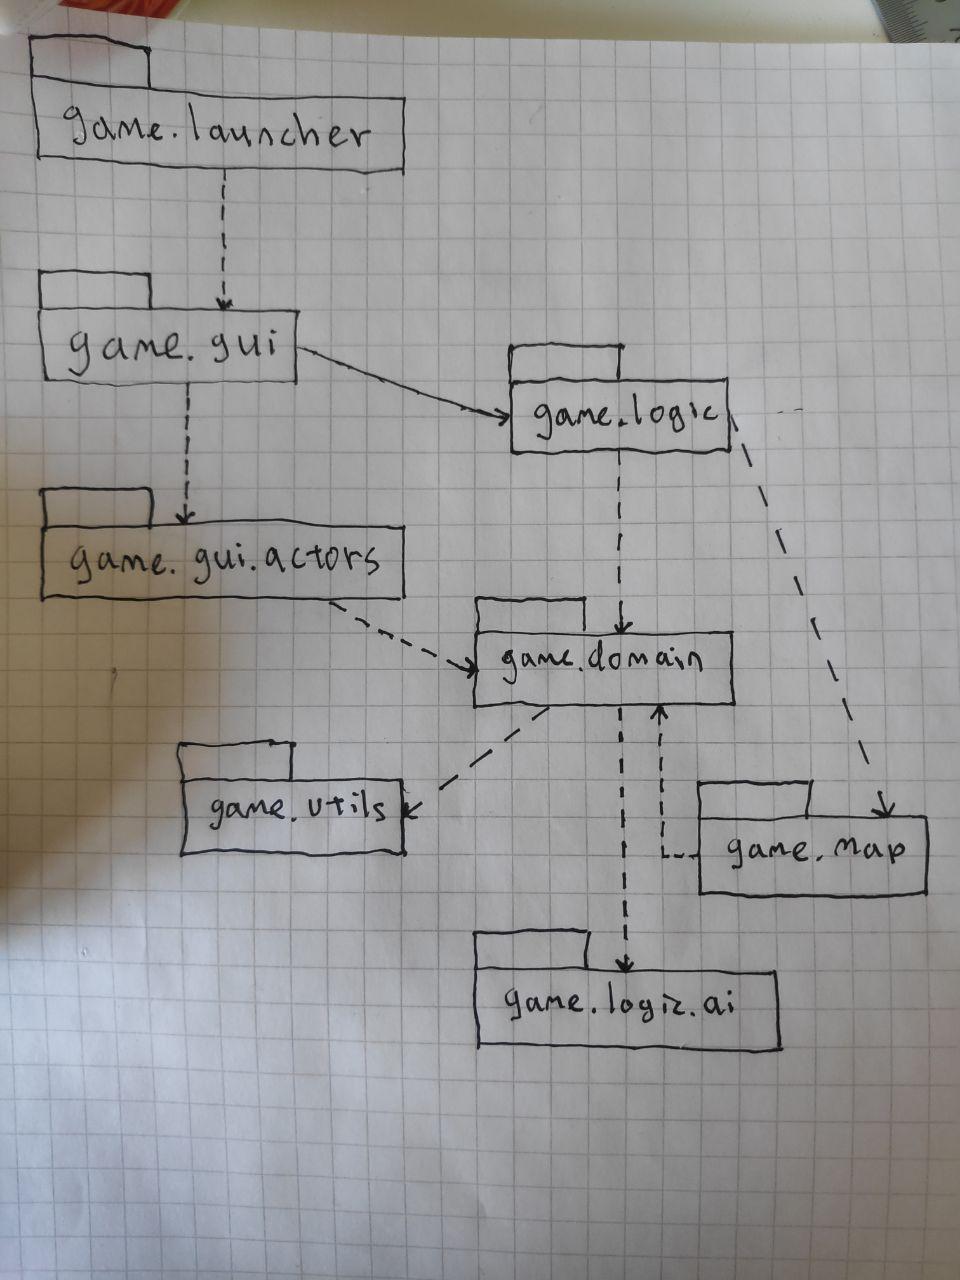 game.launcher
game.gui
game.logic
game.gui.actors
game.domain
game.utils
game.map
game.logic.ai